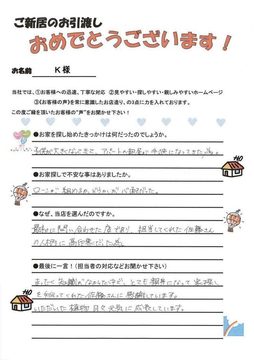 ご新居のお引渡し
おめでとうございます!
お名前 K 様
当社では、①お客様への迅速、丁寧な対応 ②見やすい・探しやすい・親しみやすいホームページ
③《お客様の声》を常に意識したお店造り、の3点に力を入れております。
この度ご縁を頂いたお客様の"声"をお聞かせ下さい。
●お家を探し始めたきっかけは何だったのでしょうか。
子供が大きくなってきて、アパートの部屋が手狭になってきた為。
●お家探しで不安な事はありましたか。
ローンが組めるか どうかが 心配だった。
●なぜ、当店を選んだのですか。
最初に問い合わせた店であり、担当してくれた佐藤さん
の人柄に 好印象だった為。
●最後に一言!(担当者の対応などお聞かせ下さい)
まったく知識がなかった中で、とても親身になって家探し
を手伝ってくれた佐藤さんに感謝しています。
いただいた植物 日々 元気に 成長しています。